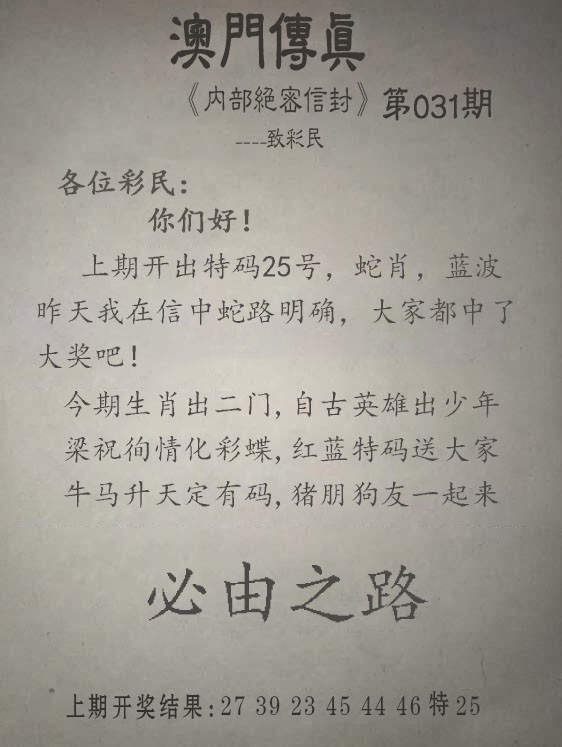 澳門傳真
《内部絕密信封》第031期
----致彩民
各位彩民:
你们好!
上期开出特码25号，蛇肖，蓝波
昨天我在信中蛇路明确，大家都中了
大奖吧!
今期生肖出二门,自古英雄出少年
梁祝徇情化彩蝶,红蓝特码送大家
牛马升天定有码,猪朋狗友一起来
必由之路
上期开奖结果:27 39 23 45 44 46 特 25